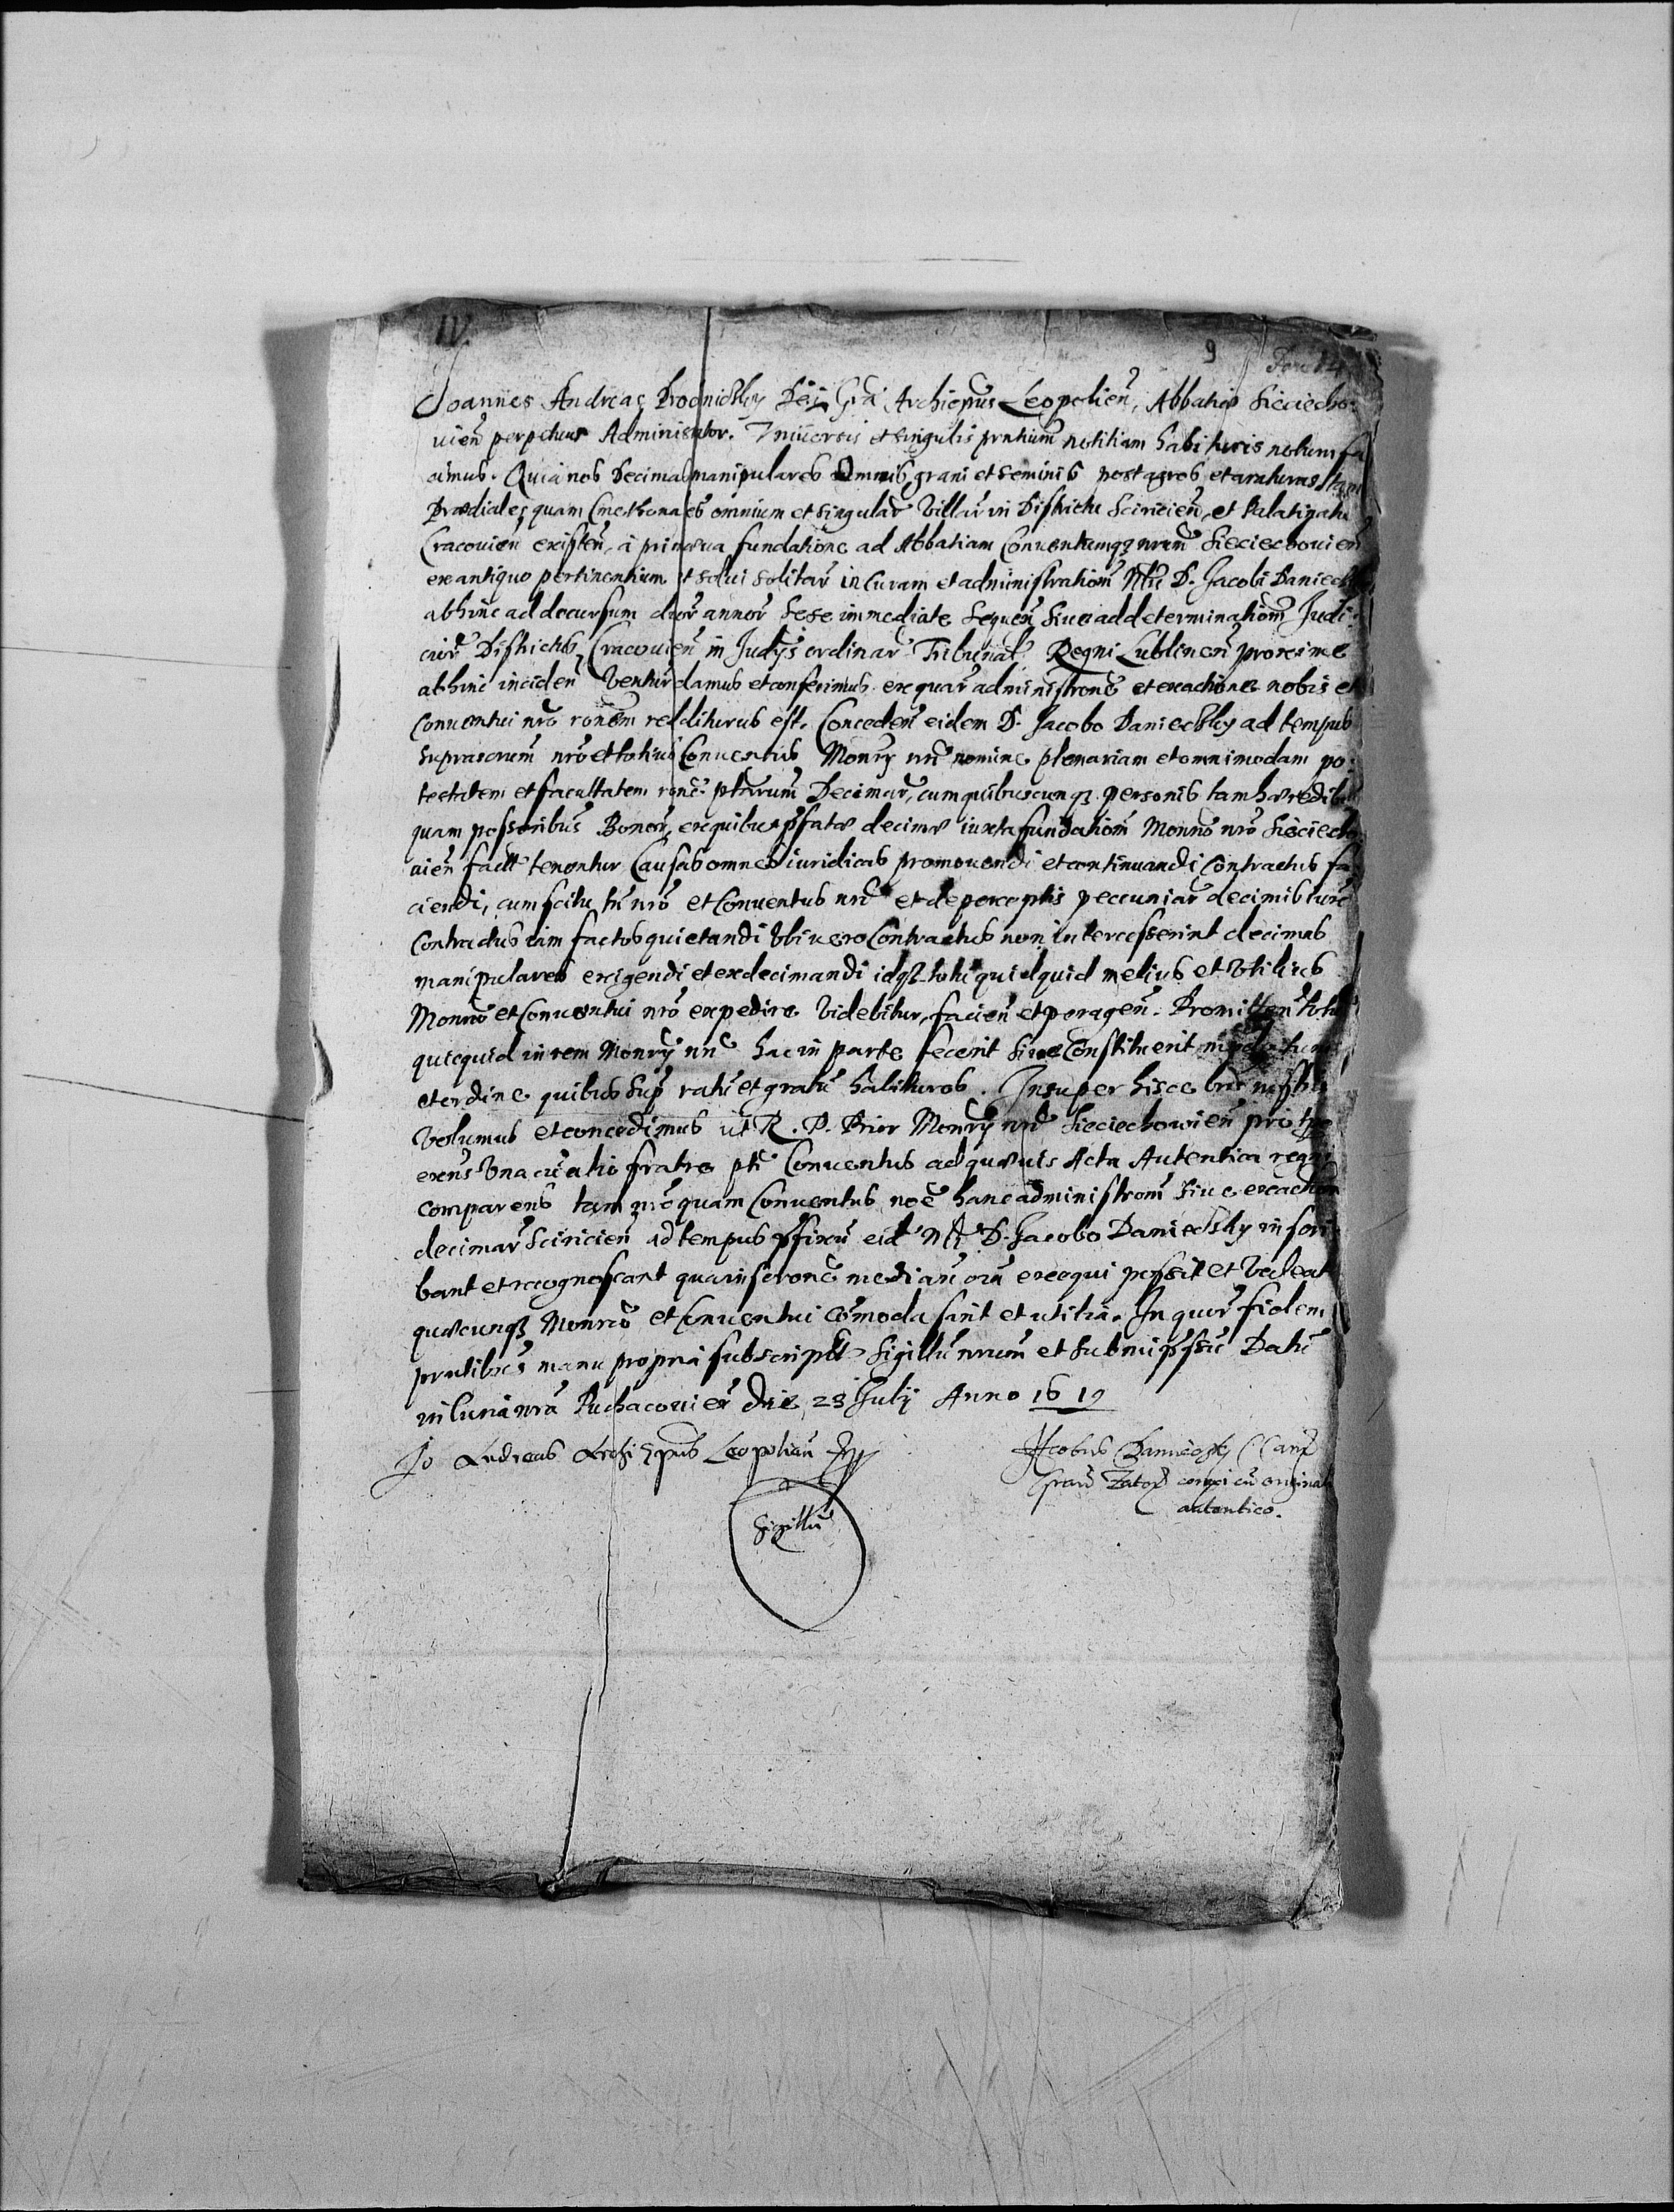 IV.
9
Joannes Andreas Prochnickky Dei Grã Archiepus Leopolien, Abbatiæ Sieciecho-
uien perpetuus Administrator. Vniuersis et singulis prntium notitiam habituris notum fa
cimus. Quia nos Decimas manipulares omnis grani et seminis post agros et araturas tam
Prædiales quam Cmethonales omnium et singular Villar in Districtu Sciricien, et Palatinatu
Cracouien existen, à primæua fundatione ad Abbatiam Conuentumqz nrum Sieciechouien
ex antiquo pertinentium et solui solitar in Curam et administrationẽ D. Jacobi Danieck
abhinc ad decursum annor sese immediate sequen siue ad determinationẽ Judi-
cior Districtus Cracouien in Judys ordinar Tribunal Regni Lublinen proxime
abhinc inciden Ventur damus et conferimus. ex quar administrone et exactione nobis et
Conuentui nrõ ronem redditurus est. Conceden eidem D. Jacobo Danieckky ad tempus
suprascrium nrõ et totius Conuentus Monry nri nomine plenariam et omnimodam po-
testatem et facultatem ronẽ Decimar, cum quibuscunqz personis tam hæredib
quam possoribus Bonor, ex quibus pfatæ decimæ iuxta fundationẽ Monrio nrõ Sieciecho
uien tenentur Causas omnes iuridicas promouendi et continuandi Contractus fa
ciendi, cum scitu tñ nrõ et Conuentus nri et de perceptis peccuniar decimis iure
Contractus eim factos quietandi Vbi uero Contractus non intercesserint decimas
manipulares exigendi et exdecimandi idqz quidquid melius et Vtilius
Monrio et Conuentui nrõ expedire Videbitur, facien et peragen. Promitten
quicquid in rem Monry nri hac in parte fecerit siue Constituerit
et ordine quibus sup ratũ et gratũ habituros. Insuper hisce
Volumus et concedimus ut R. P. Prior Monry nri Sieciechowien pro tpe
exens Vna cũ alio fratre Conuentus ad quæuis Acta Autentica regni
comparens tam nrõ quam Conuentus noẽ hanc administronẽ siue exaction
decimar Sciricien ad tempus pfixũ eid D. Jacobo Danieckky inscri
bant et recognoscant qua inscrone exequi possit et Valeat
quæcunqz Monrio et Conuentui cõmoda sint et utilia. In quor fidem
prntibus manu propria subscript Sigillũ nrum et submi Datũ
in Curia nrã Puchacouien die 28 July Anno 1619
Jo Andreas Archiepus Leopolien
Jacobus Daniecky
cum originali
autentico.
Sigillũ